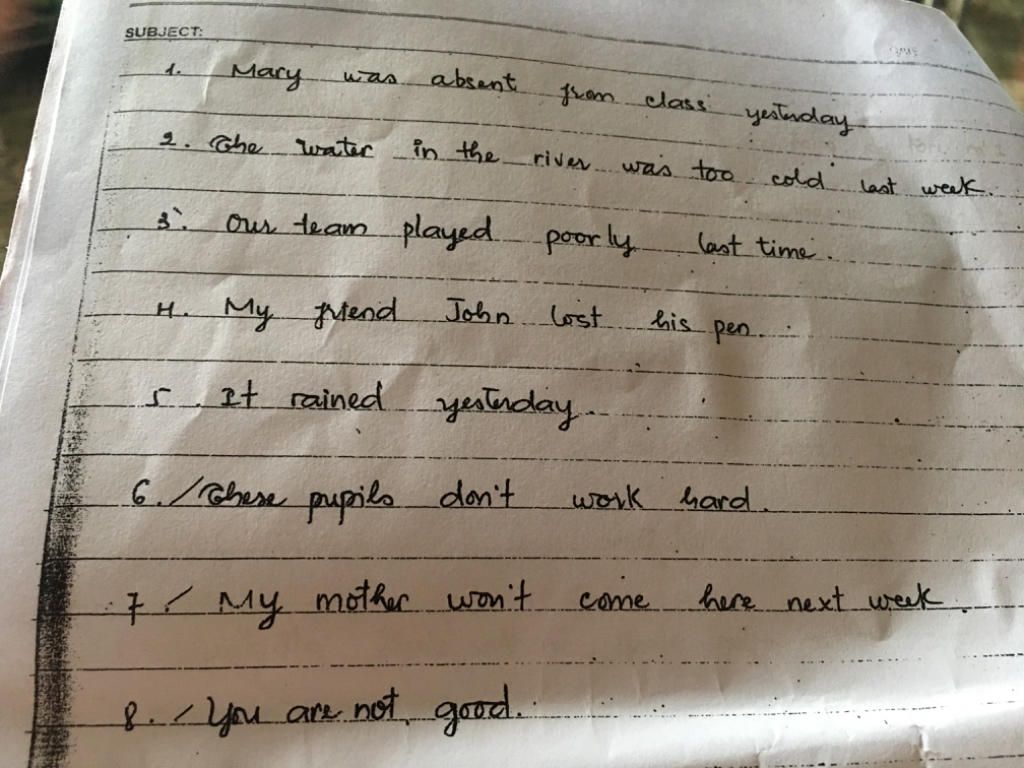 SUBJECT:
1. Mary was absent from class yesterday
2. The water in the river was too cold last week.
3. Our team played poorly last time.
4. My friend John lost his pen.
5. It rained yesterday.
6./ These pupils don't work hard.
7/ My mother won't come here next week.
8./ You are not good.